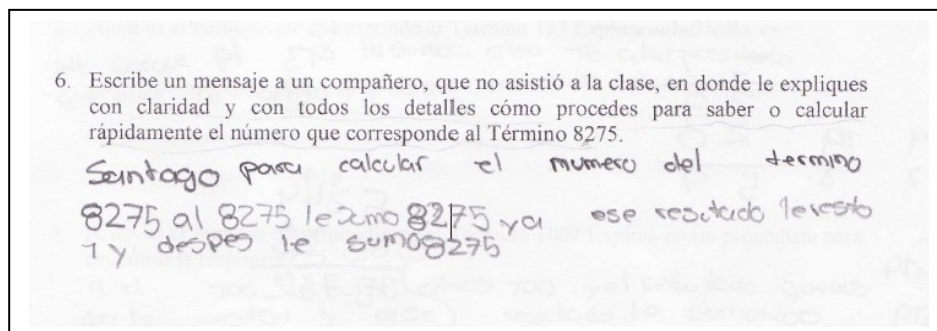 6. Escribe un mensaje a un compañero, que no asistió a la clase, en donde le expliques
con claridad y con todos los detalles cómo procedes para saber o calcular
rápidamente el número que corresponde al Término 8275.
Santago para calcular el numero del termino
8275 al 8275 le sumo 8275 y a ese resutado le resto
1 y despes le sumo 8275